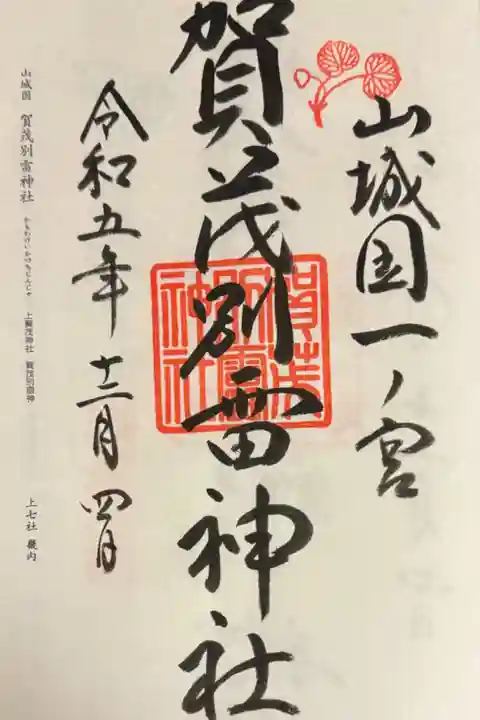 山城国一ノ宮
賀茂別雷神社
賀茂
別雷
神社
令和五年十二月四日
山城国 賀茂別雷神社 かもわけいかづちじんじゃ 上賀茂神社 賀茂別雷神
上七社 畿内